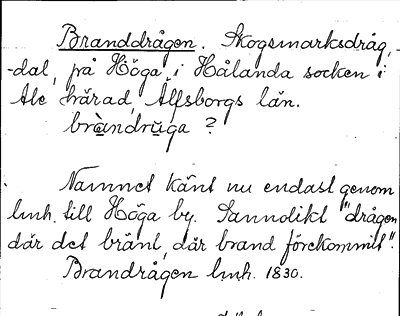 Branddrågen. Skogsmarksdråg,
-dal, på Höga, i Hålanda socken i
Ale härad, Älfsborgs län.
bràndrŭga ?
Namnet känt nu endast genom
lmh. till Höga by. Sannolikt "drågen
där det bränt, där brand förekommit".
Brandrågen lmh. 1830.